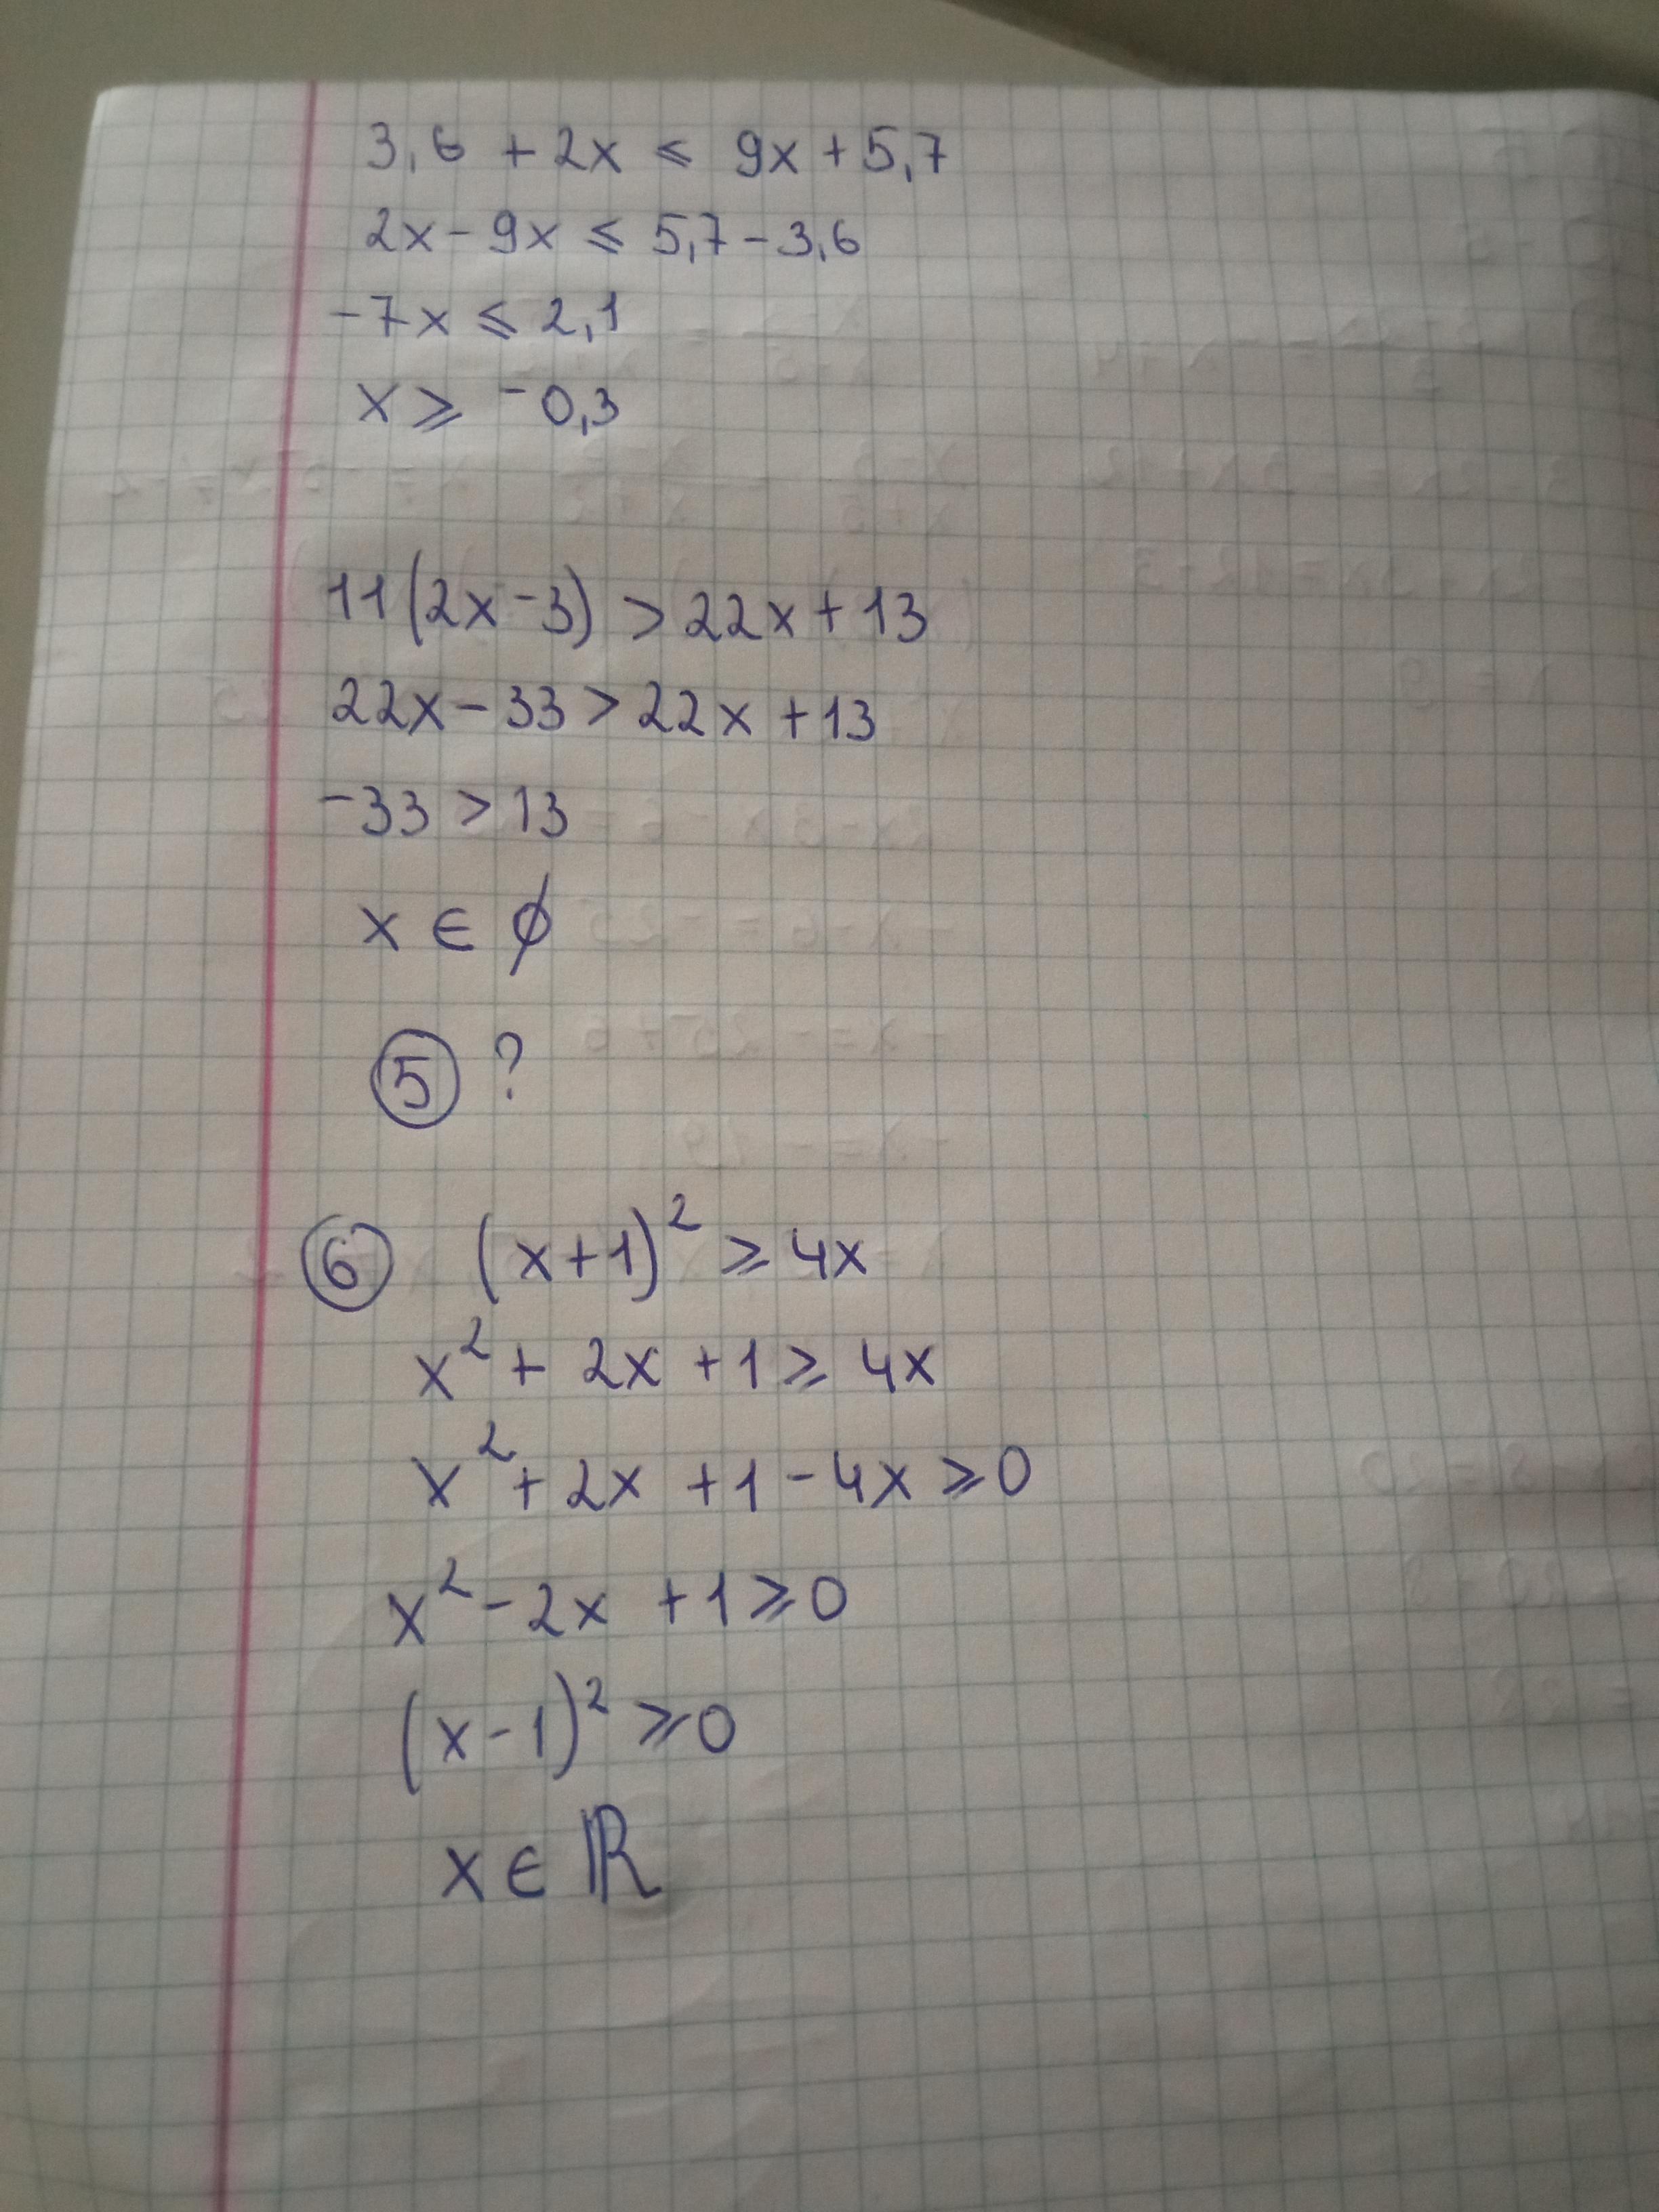 3,6 + 2x ⩽ 9x + 5,7
2x - 9x ⩽ 5,7 - 3,6
-7x ⩽ 2,1
x ⩾ -0,3
11(2x-3) > 22x + 13
22x - 33 > 22x + 13
-33 > 13
x ∈ ∅
⑤ ?
⑥ (x+1)² ⩾ 4x
x² + 2x + 1 ⩾ 4x
x² + 2x + 1 - 4x ⩾ 0
x² - 2x + 1 ⩾ 0
(x-1)² ⩾ 0
x ∈ ℝ